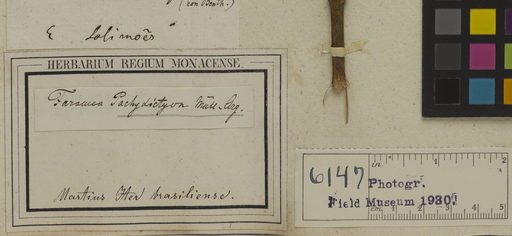 (von Benth.)
E Solimoẽs
HERBARIUM REGIUM MONACENSE.
Pachydictyon Müll. Arg.
Martius Iter brasiliense.
6147
Photogr.
Field Museum 1930.
in. 1 2
cm 1 2 3 4 5